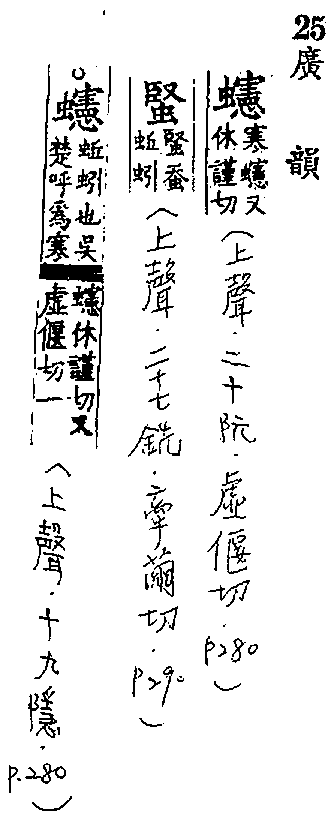 25 廣韻
蟪 寒蟪又休謹切(上聲.二十阮.虛偃切.P280)
蜸 蜸蚕蚯蚓(上聲.二十七銑.牽繭切.P290)
蟪 蚯蚓也吳楚呼爲寒蟪休謹切又虛偃切一(上聲.十九隱.P.280)